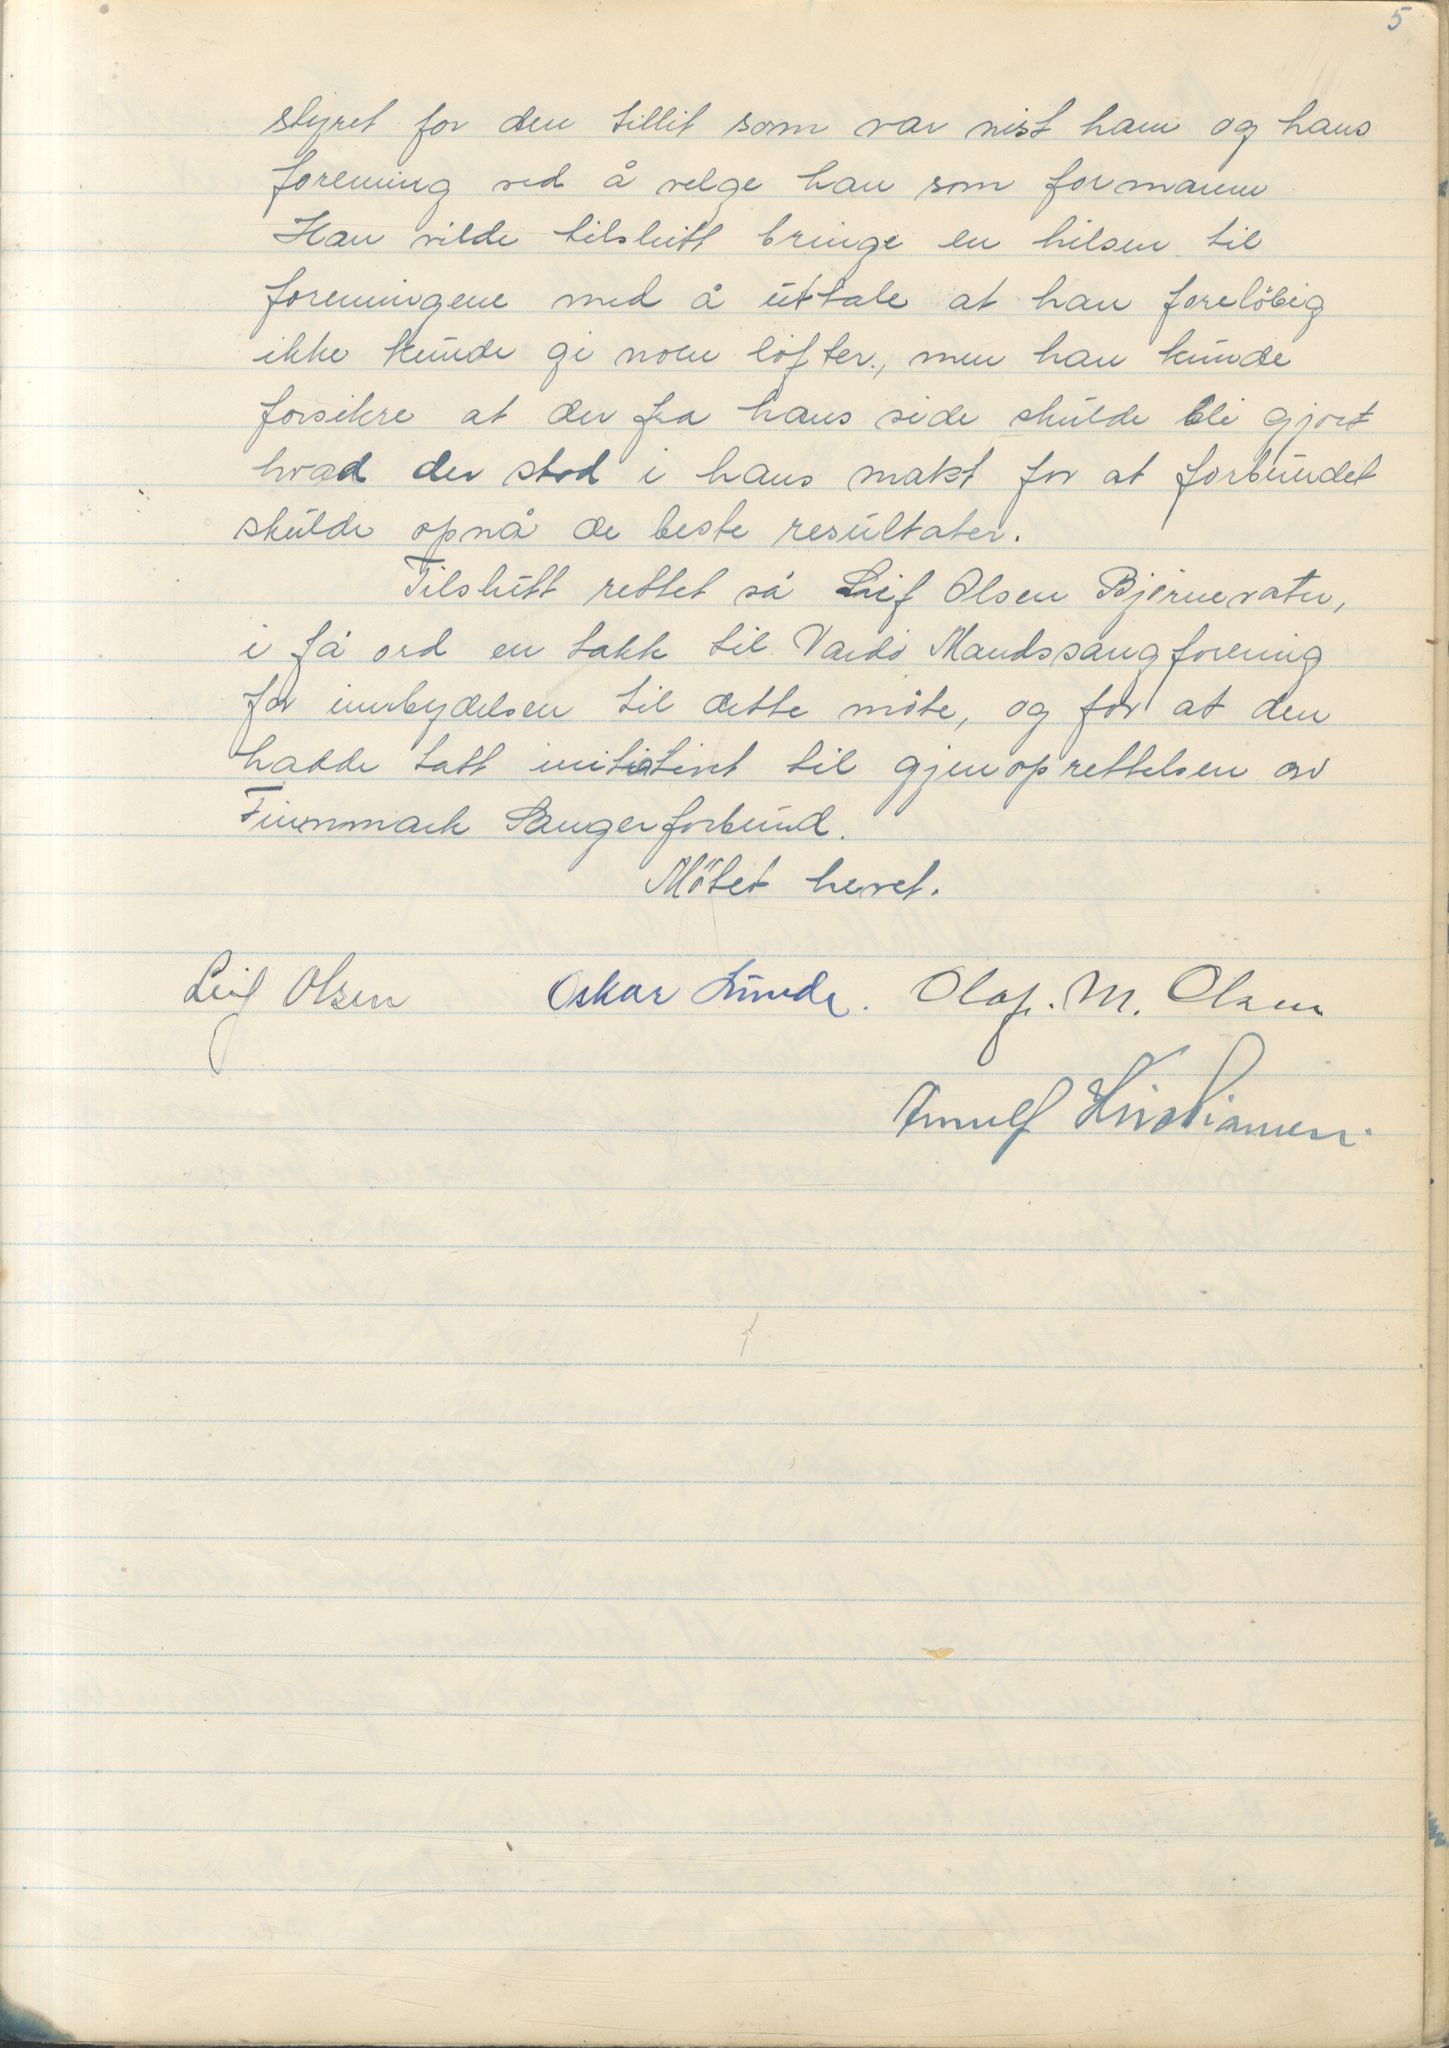 5
styret for den tillit som var vist ham og hans
forening ved å velge han som formann
Han vilde tilslutt bringe en hilsen til
foreningene med å uttale at han foreløbig
ikke kunde gi noen løfter., men han kunde
forsikre at der fra hans side skulde bli gjort
hvad der stod i hans makt for at forbundet
skulde opnå de beste resultater.
Tilslutt rettet så Leif Olsen Bjørnevatn,
i få ord en takk til Vardø Mandssangforening
for innbydelsen til dette møte, og for at den
hadde tatt initiativet til gjenoprettelsen av
Finnmark Sangerforbund.
Møtet hevet.
Leif Olsen Oskar Lunde. Olaf. M. Olsen
Arnulf Kristiansen.